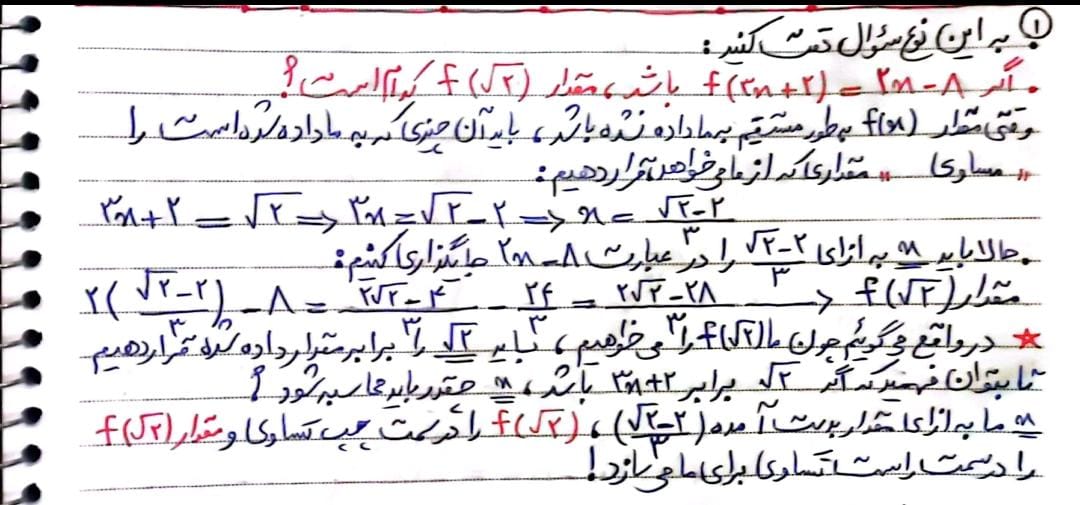 ① به این نوع سؤال دقت کنید:
• اگر f(۳x+۲) = ۲x-۸ باشد، مقدار f(√۲) کدام است؟
وقتی مقدار f(x) بطور مستقیم به ما داده نشده باشد، باید آن چیزی که به ما داده شده است را
"مساوی" مقداری که از ما می‌خواهد، قرار دهیم:
۳x+۲ = √۲ ⇒ ۳x = √۲-۲ ⇒ x = (√۲-۲)/۳
• حالا باید x به ازای (√۲-۲)/۳ را در عبارت ۲x-۸ جایگذاری کنیم:
۲((√۲-۲)/۳) - ۸ = (۲√۲-۴)/۳ - ۲۴/۳ = (۲√۲-۲۸)/۳ → مقدار f(√۲)
★ در واقع می‌گوئیم چون ما f(√۲) را می‌خواهیم، باید √۲ را برابر مقدار داده شده قرار دهیم
تا بتوان فهمید که اگر √۲ برابر ۳x+۲ باشد، x چقدر باید محاسبه شود؟
x ما به ازای مقدار بدست آمده ((√۲-۲)/۳)، f(√۲) را در سمت چپ تساوی و مقدار f(√۲)
را در سمت راست تساوی برای ما می‌سازد!